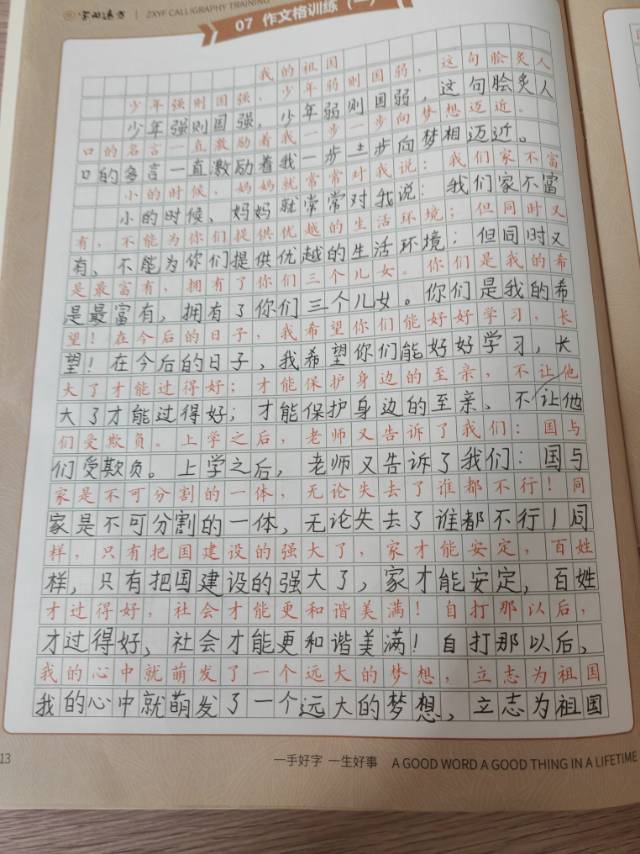 字如遇方 | ZXYF CALLIGRAPHY TRAINING
07 作文格训练（一）
我的祖国
少年强则国强，少年弱则国弱，这句脍炙人
少年强则国强，少年弱则国弱，这句脍炙人
口的名言一直激励着我一步一步向梦想迈近。
口的名言一直激励着我一步一步向梦相迈近。
小的时候，妈妈就常常对我说：我们家不富
小的时候、妈妈就常常对我说：我们家不富
有，不能为你们提供优越的生活环境；但同时又
有、不能为你们提供优越的生活环境；但同时又
是最富有，拥有了你们三个儿女。你们是我的希
是最富有，拥有了你们三个儿女。你们是我的希
望！在今后的日子，我希望你们能好好学习，长
望！在今后的日子，我希望你们能好好学习，长
大了才能过得好；才能保护身边的至亲，不让他
大了才能过得好；才能保护身边的至亲、不让他
们受欺负。上学之后，老师又告诉了我们：国与
们受欺负。上学之后，老师又告诉了我们：国与
家是不可分割的一体，无论失去了谁都不行！同
家是不可分割的一体，无论失去了谁都不行！同
样，只有把国建设的强大了，家才能安定，百姓
样，只有把国建设的强大了，家才能安定，百姓
才过得好，社会才能更和谐美满！自打那以后，
才过得好，社会才能更和谐美满！自打那以后，
我的心中就萌发了一个远大的梦想，立志为祖国
我的心中就萌发了一个远大的梦想，立志为祖国
13 一手好字 一生好事 A GOOD WORD A GOOD THING IN A LIFETIME